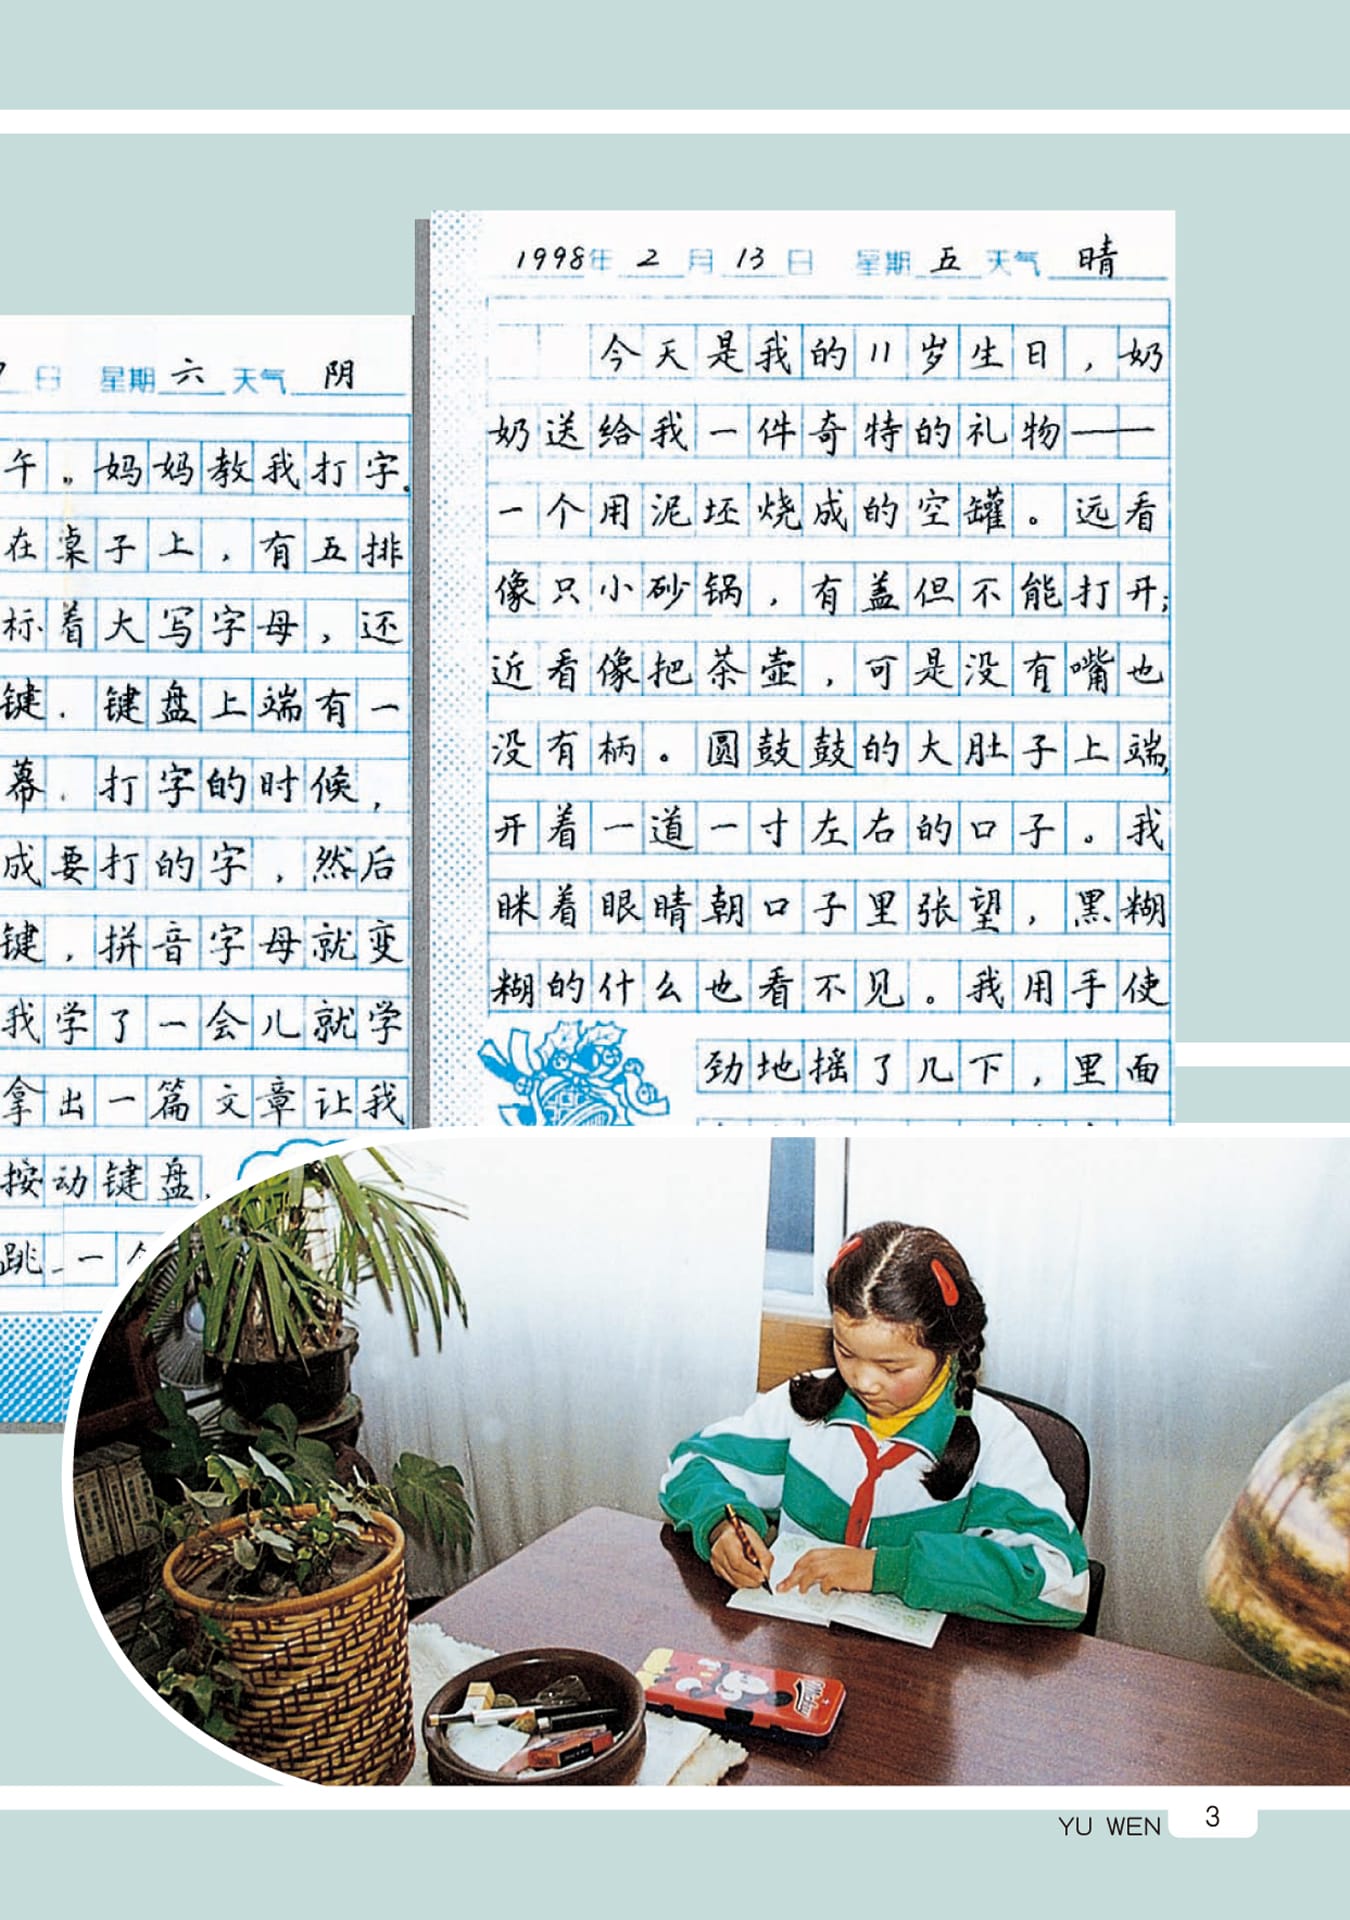 7日 星期六 天气 阴
午。妈妈教我打字.
在桌子上，有五排
标着大写字母，还
键．键盘上端有一
幕．打字的时候，
成要打的字，然后
键，拼音字母就变
我学了一会儿就学
拿出一篇文章让我
按动键盘．
跳一个
1998年 2 月 13 日 星期 五 天气 晴
今天是我的11岁生日，奶
奶送给我一件奇特的礼物——
一个用泥坯烧成的空罐。远看
像只小砂锅，有盖但不能打开；
近看像把茶壶，可是没有嘴也
没有柄。圆鼓鼓的大肚子上端，
开着一道一寸左右的口子。我
眯着眼睛朝口子里张望，黑糊
糊的什么也看不见。我用手使
劲地摇了几下，里面
YU WEN 3